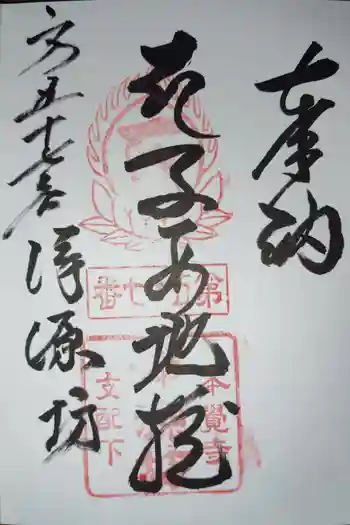 奉納
子安地蔵
第五十七番
源坊
第五十七番
本覺寺
支配下